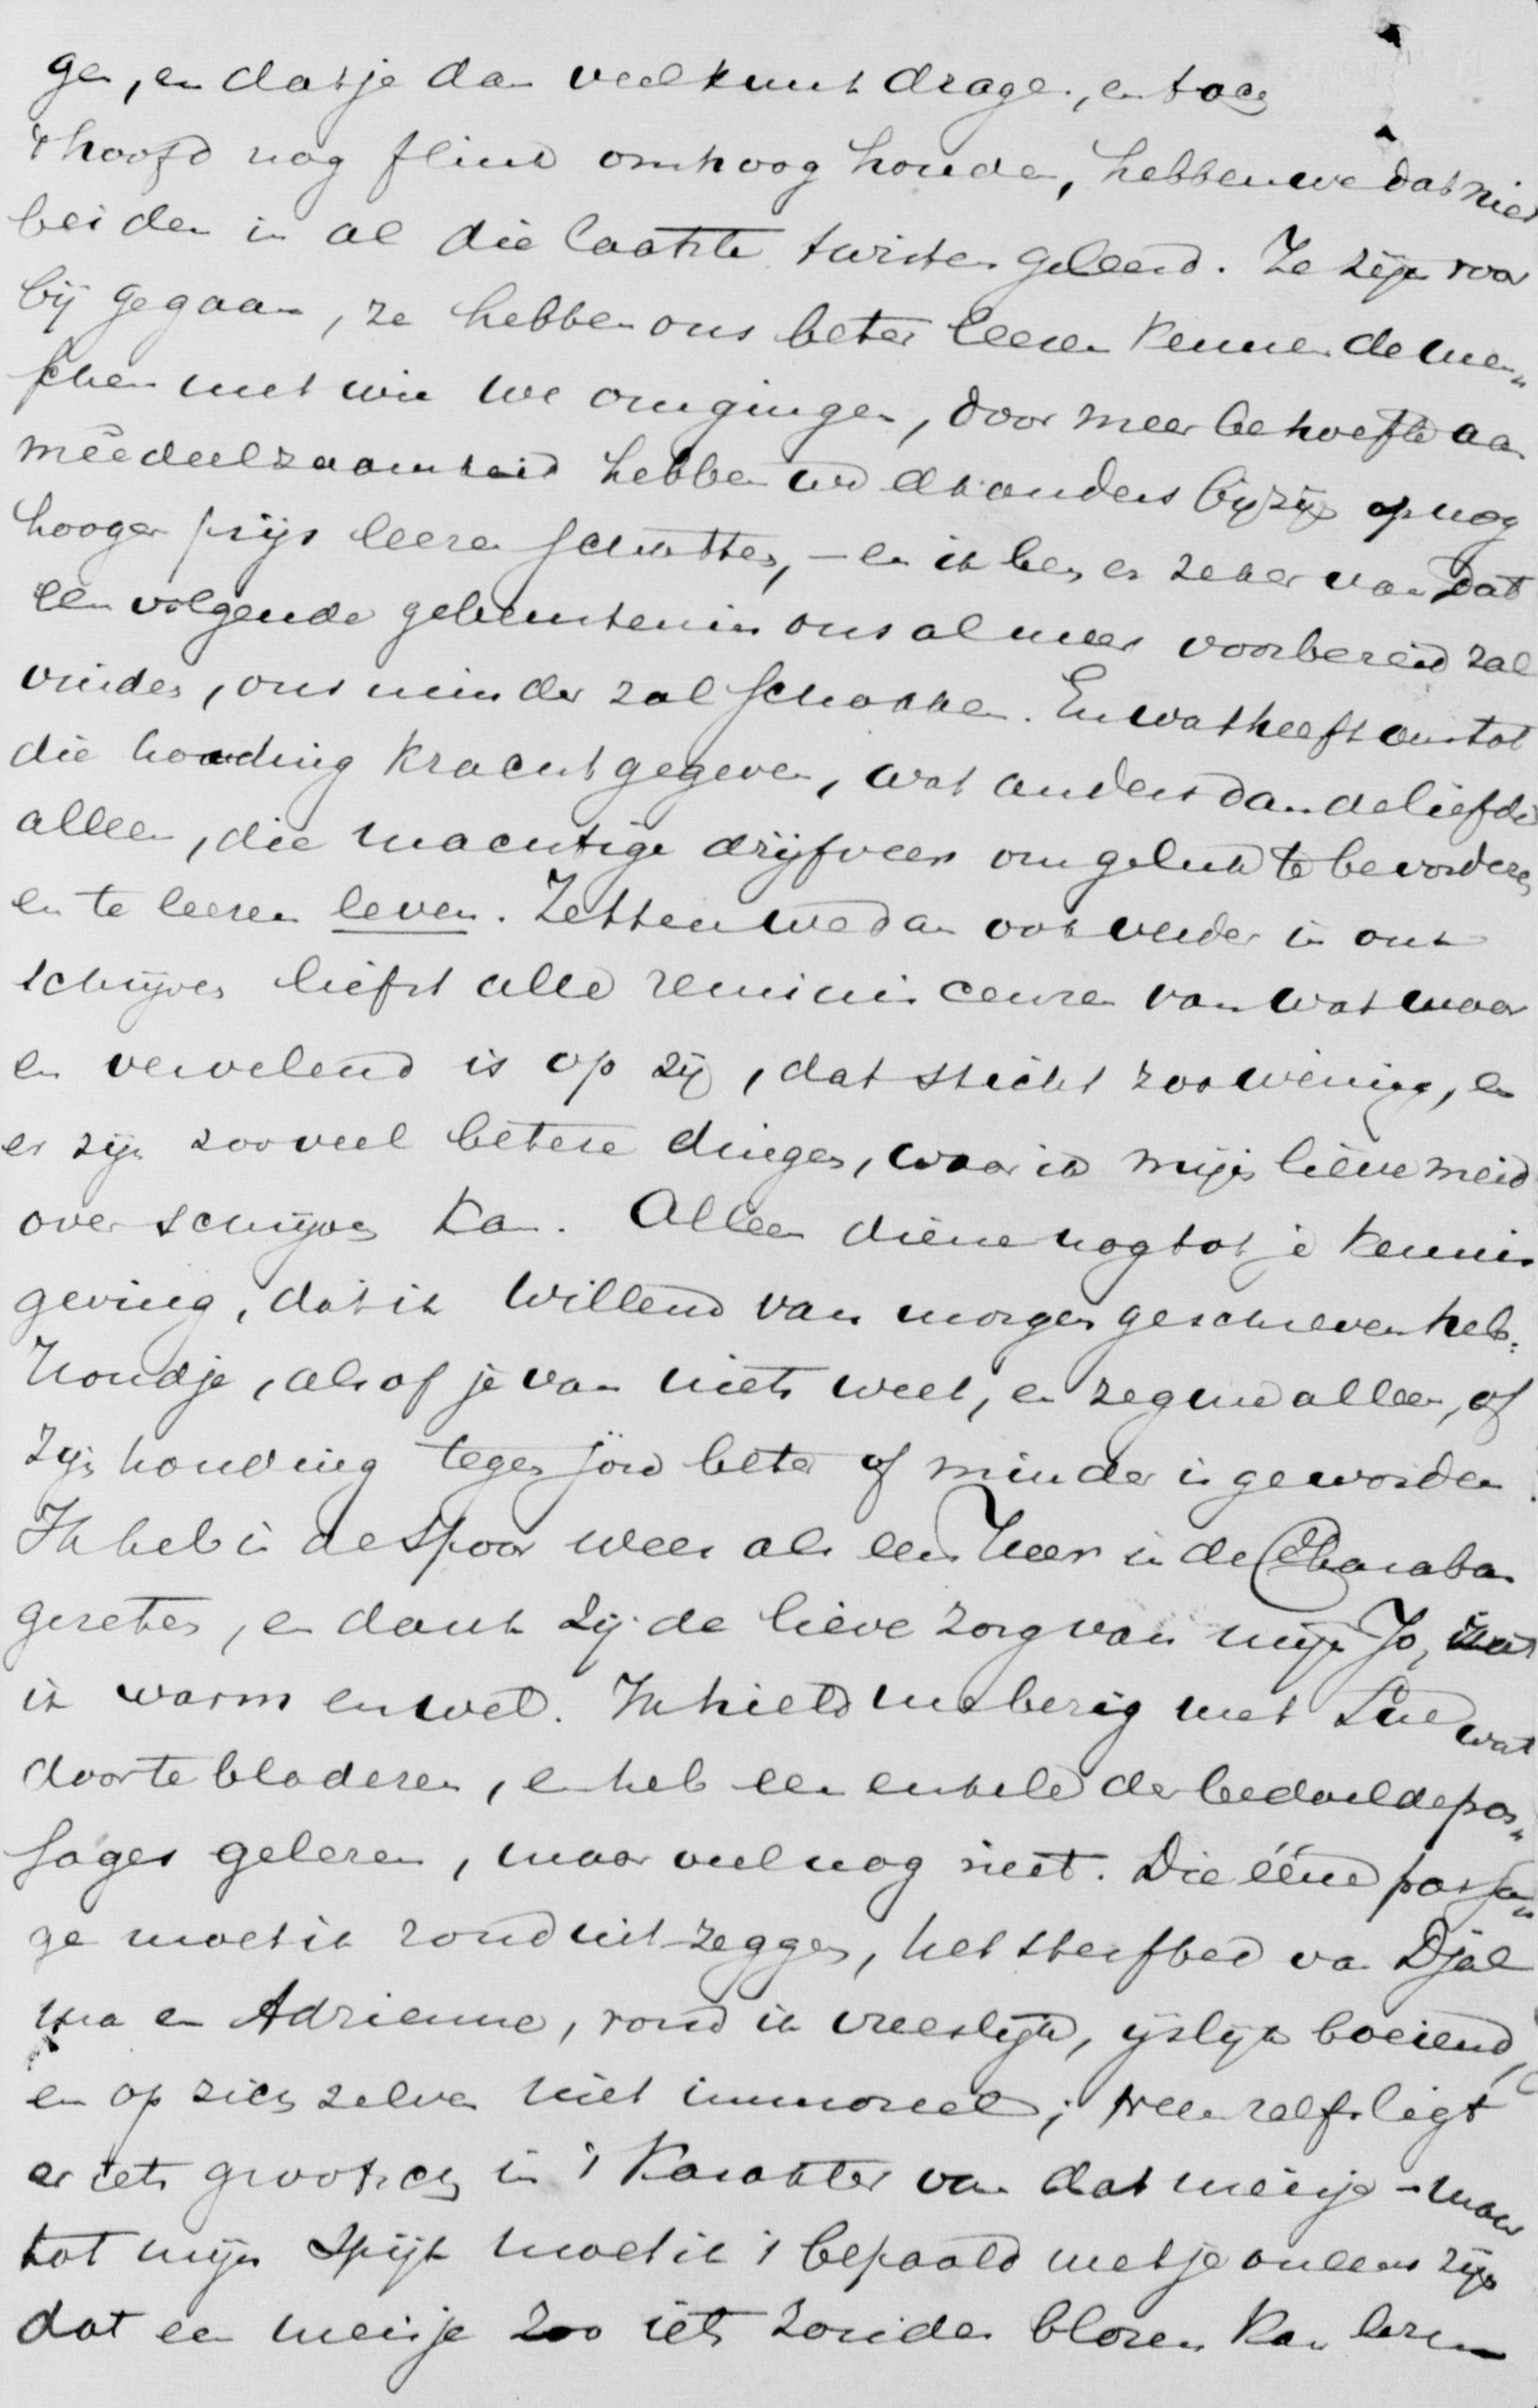 gen, en dat je dan veel kunt dragen, en toch
't hoofd nog flink omhoog houden, hebben we dat niet
beiden in al die laatste twisten geleerd. Ze zijn voor
bij gegaan, ze hebben ons beter leeren kennen de men„
schen met wie we omgingen, door meer behoefte aan
mêedeelzaamheid hebben we elkanders bijzijn op nog
hooger prijs leeren schatten, – en ik ben er zeker van dat
een volgende gebeurtenis ons al meer voorbereid zal
vinden, ons minder zal schokken. En wat heeft ons tot
die houding kracht gegeven, wat anders dan de liefde
alleen, die machtige drijfveer om geluk te bevorderen
en te leeren leven. Zetten we dan ook verder in ons
schrijven liefst alle reminiscensen van wat naar
en vervelend is op zij, dat sticht zoo weinig, en
er zijn zooveel betere dingen, waar ik mijn lieve meid
over schrijven kan. Alleen diene nog tot je kennis
geving, dat ik Willend van morgen geschreven heb.
Houdje, alsof je van niets weet, en zeg me alleen, of
zijn houding tegen jou beter of minder is geworden.
Ik heb in de spoor weer als een Heer in de Charaban
gezeten, en dank zij de lieve zorg van mijn Jo, zat
ik warm en wel. Ik hield me bezig met Sue wat
door te bladeren, en heb een enkele der bedoelde pas„
sages gelezen, maar veel nog niet. Die ééne passa„
ge moet ik ronduit zeggen, het sterfbed van Djal
ma en Adrienne, vond ik vreeslijk, ijslijk boeiend,
en op zich zelve niet immoreel; veeleer zelfs ligt
er iets grootsch in 't karakter van dat meisje – maar
tot mijn spijt moet ik 't bepaald met je oneens zijn
dat een meisje zoo iets zonder blozen kan lezen